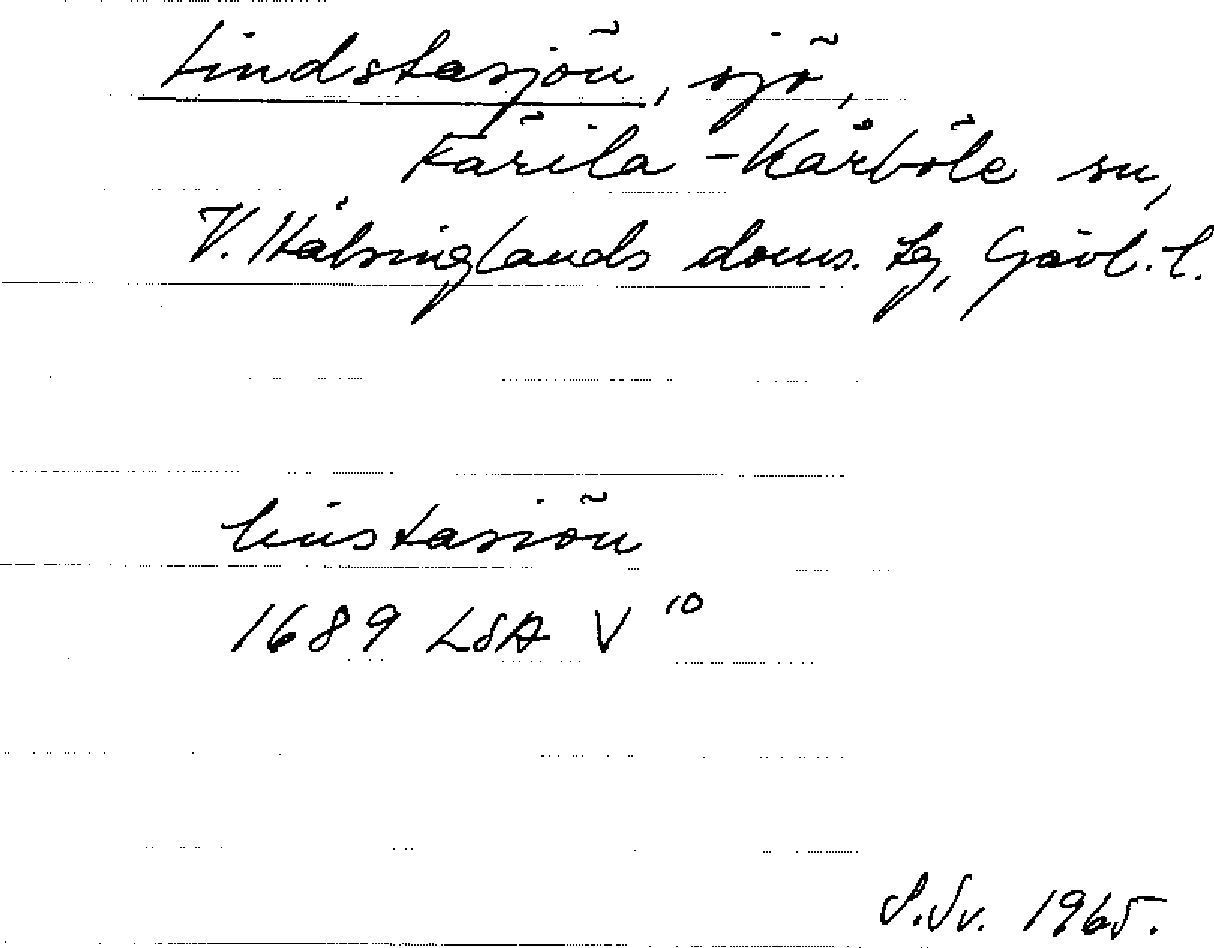 Lindstasjön, sjö,
Färila-Kårböle sn,
V. Hälsinglands doms. tg, Gävl. l.
linstasiön
1689 LSA V 10
S.Sv. 1965.